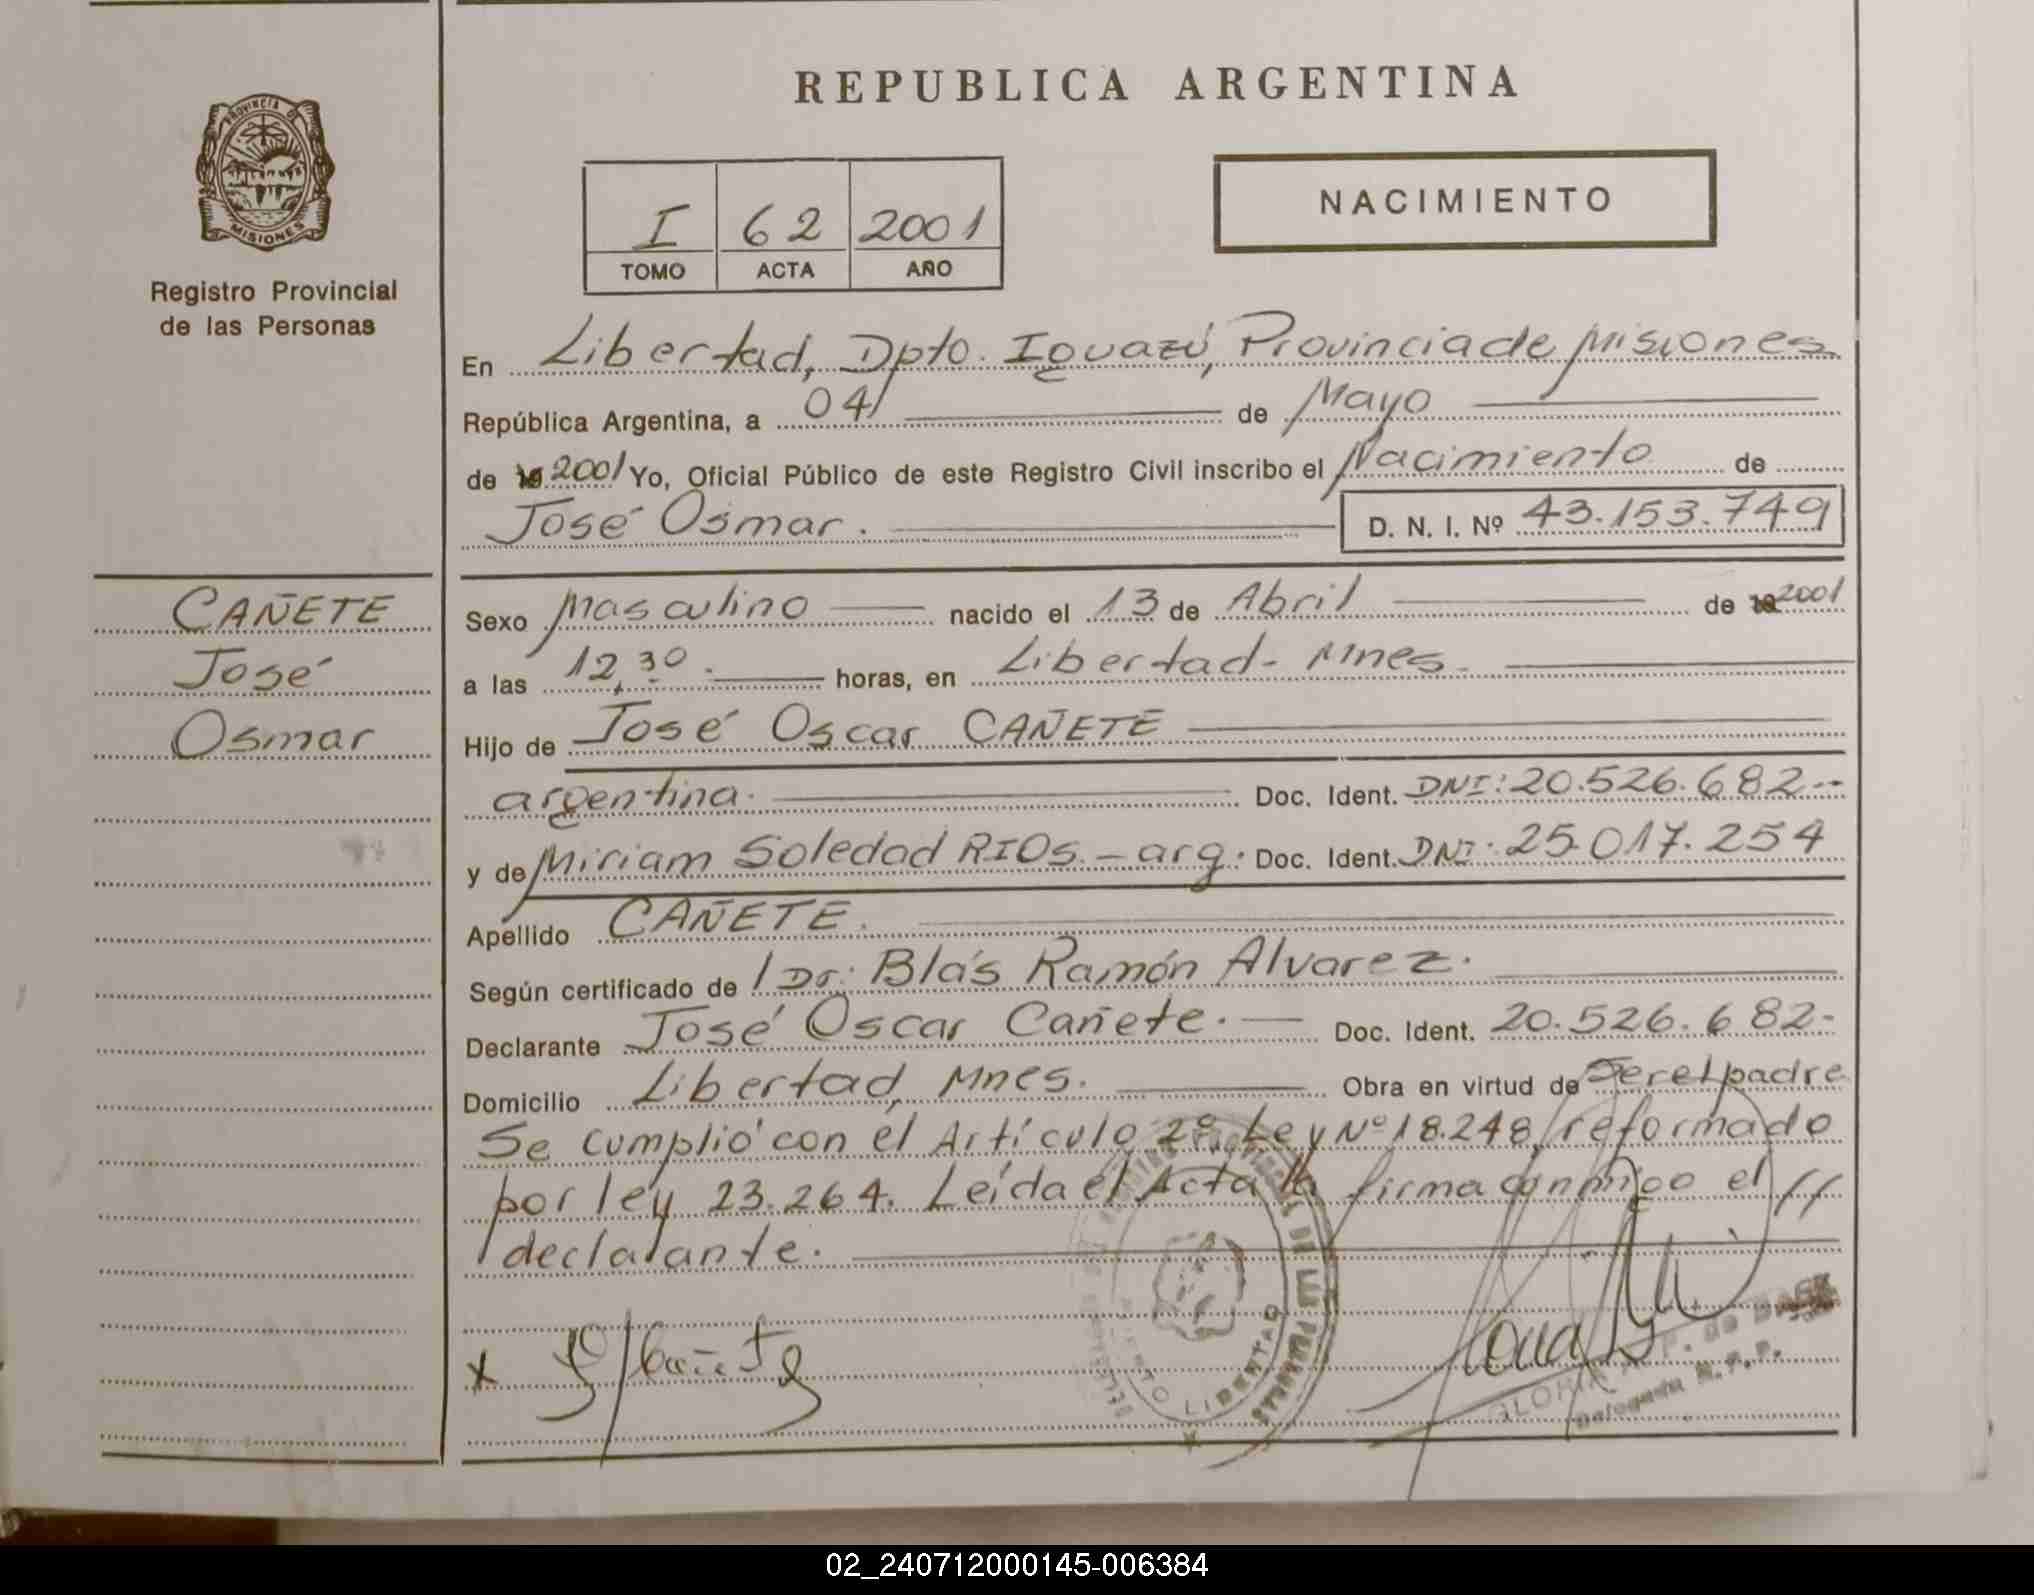 REPUBLICA ARGENTINA
PROVINCIA D
MISIONES
Registro Provincial
de las Personas
I 62 2001
TOMO ACTA AÑO
NACIMIENTO
En Libertad, Dpto. Iguazú, Provincia de Misiones
República Argentina, a 04 de Mayo
de 19 2001 Yo, Oficial Público de este Registro Civil inscribo el Nacimiento de
José Osmar. D. N. I. Nº 43.153.749
CAÑETE
José
Osmar
Sexo Masculino nacido el 13 de Abril de 19 2001
a las 12,30. horas, en Libertad- Mnes.
Hijo de José Oscar CAÑETE
argentina. Doc. Ident. DNI: 20.526.682--
y de Miriam Soledad RIOS.- arg. Doc. Ident. DNI: 25.017.254
Apellido CAÑETE.
Según certificado de / Dr: Blás Ramón Alvarez.
Declarante José Oscar Cañete. — Doc. Ident. 20.526.682-
Domicilio Libertad, Mnes. Obra en virtud de Ser el padre
Se cumplió con el Artículo 2º Ley Nº 18.248, reformado
por ley 23.264. Leída el Acta la firma conmigo el //
declarante.
LIBERTAD
x
GLORIA
Delegada R.P.P.
02_240712000145-006384